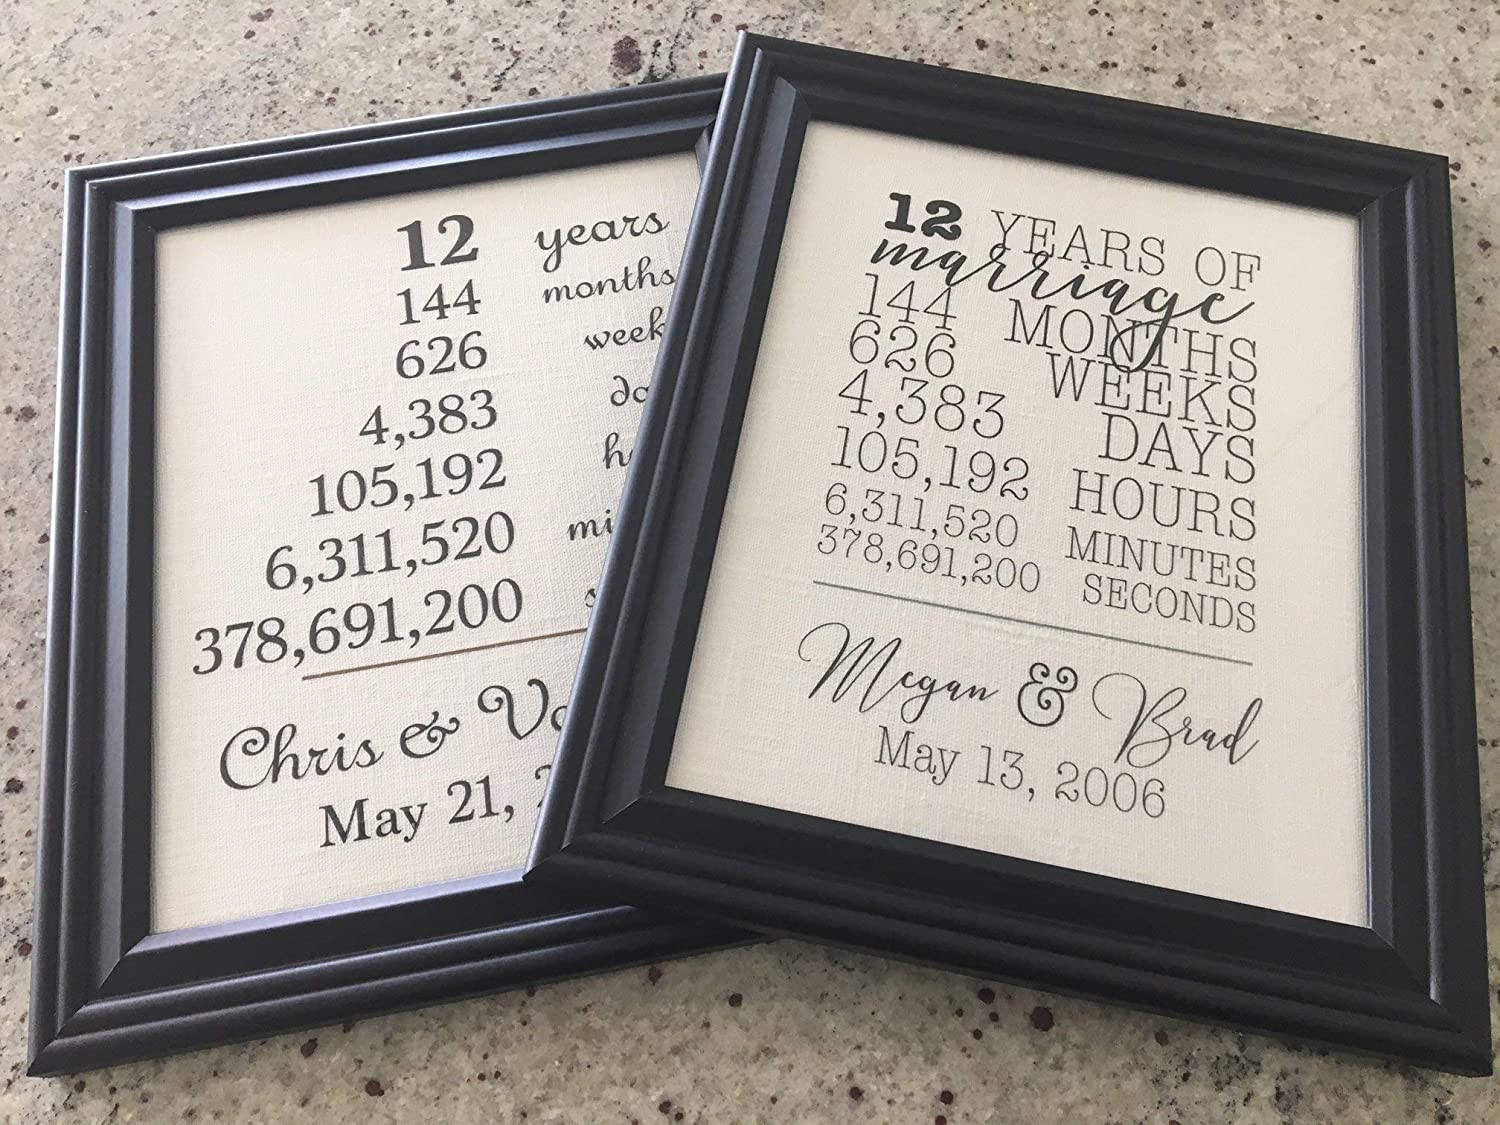 12 years
144 months
626
4,383
105,192
6,311,520
378,691,200
Chris &
May 21,
12 YEARS OF
marriage
144 MONTHS
626 WEEKS
4,383 DAYS
105,192 HOURS
6,311,520 MINUTES
378,691,200 SECONDS
Megan & Brad
May 13, 2006